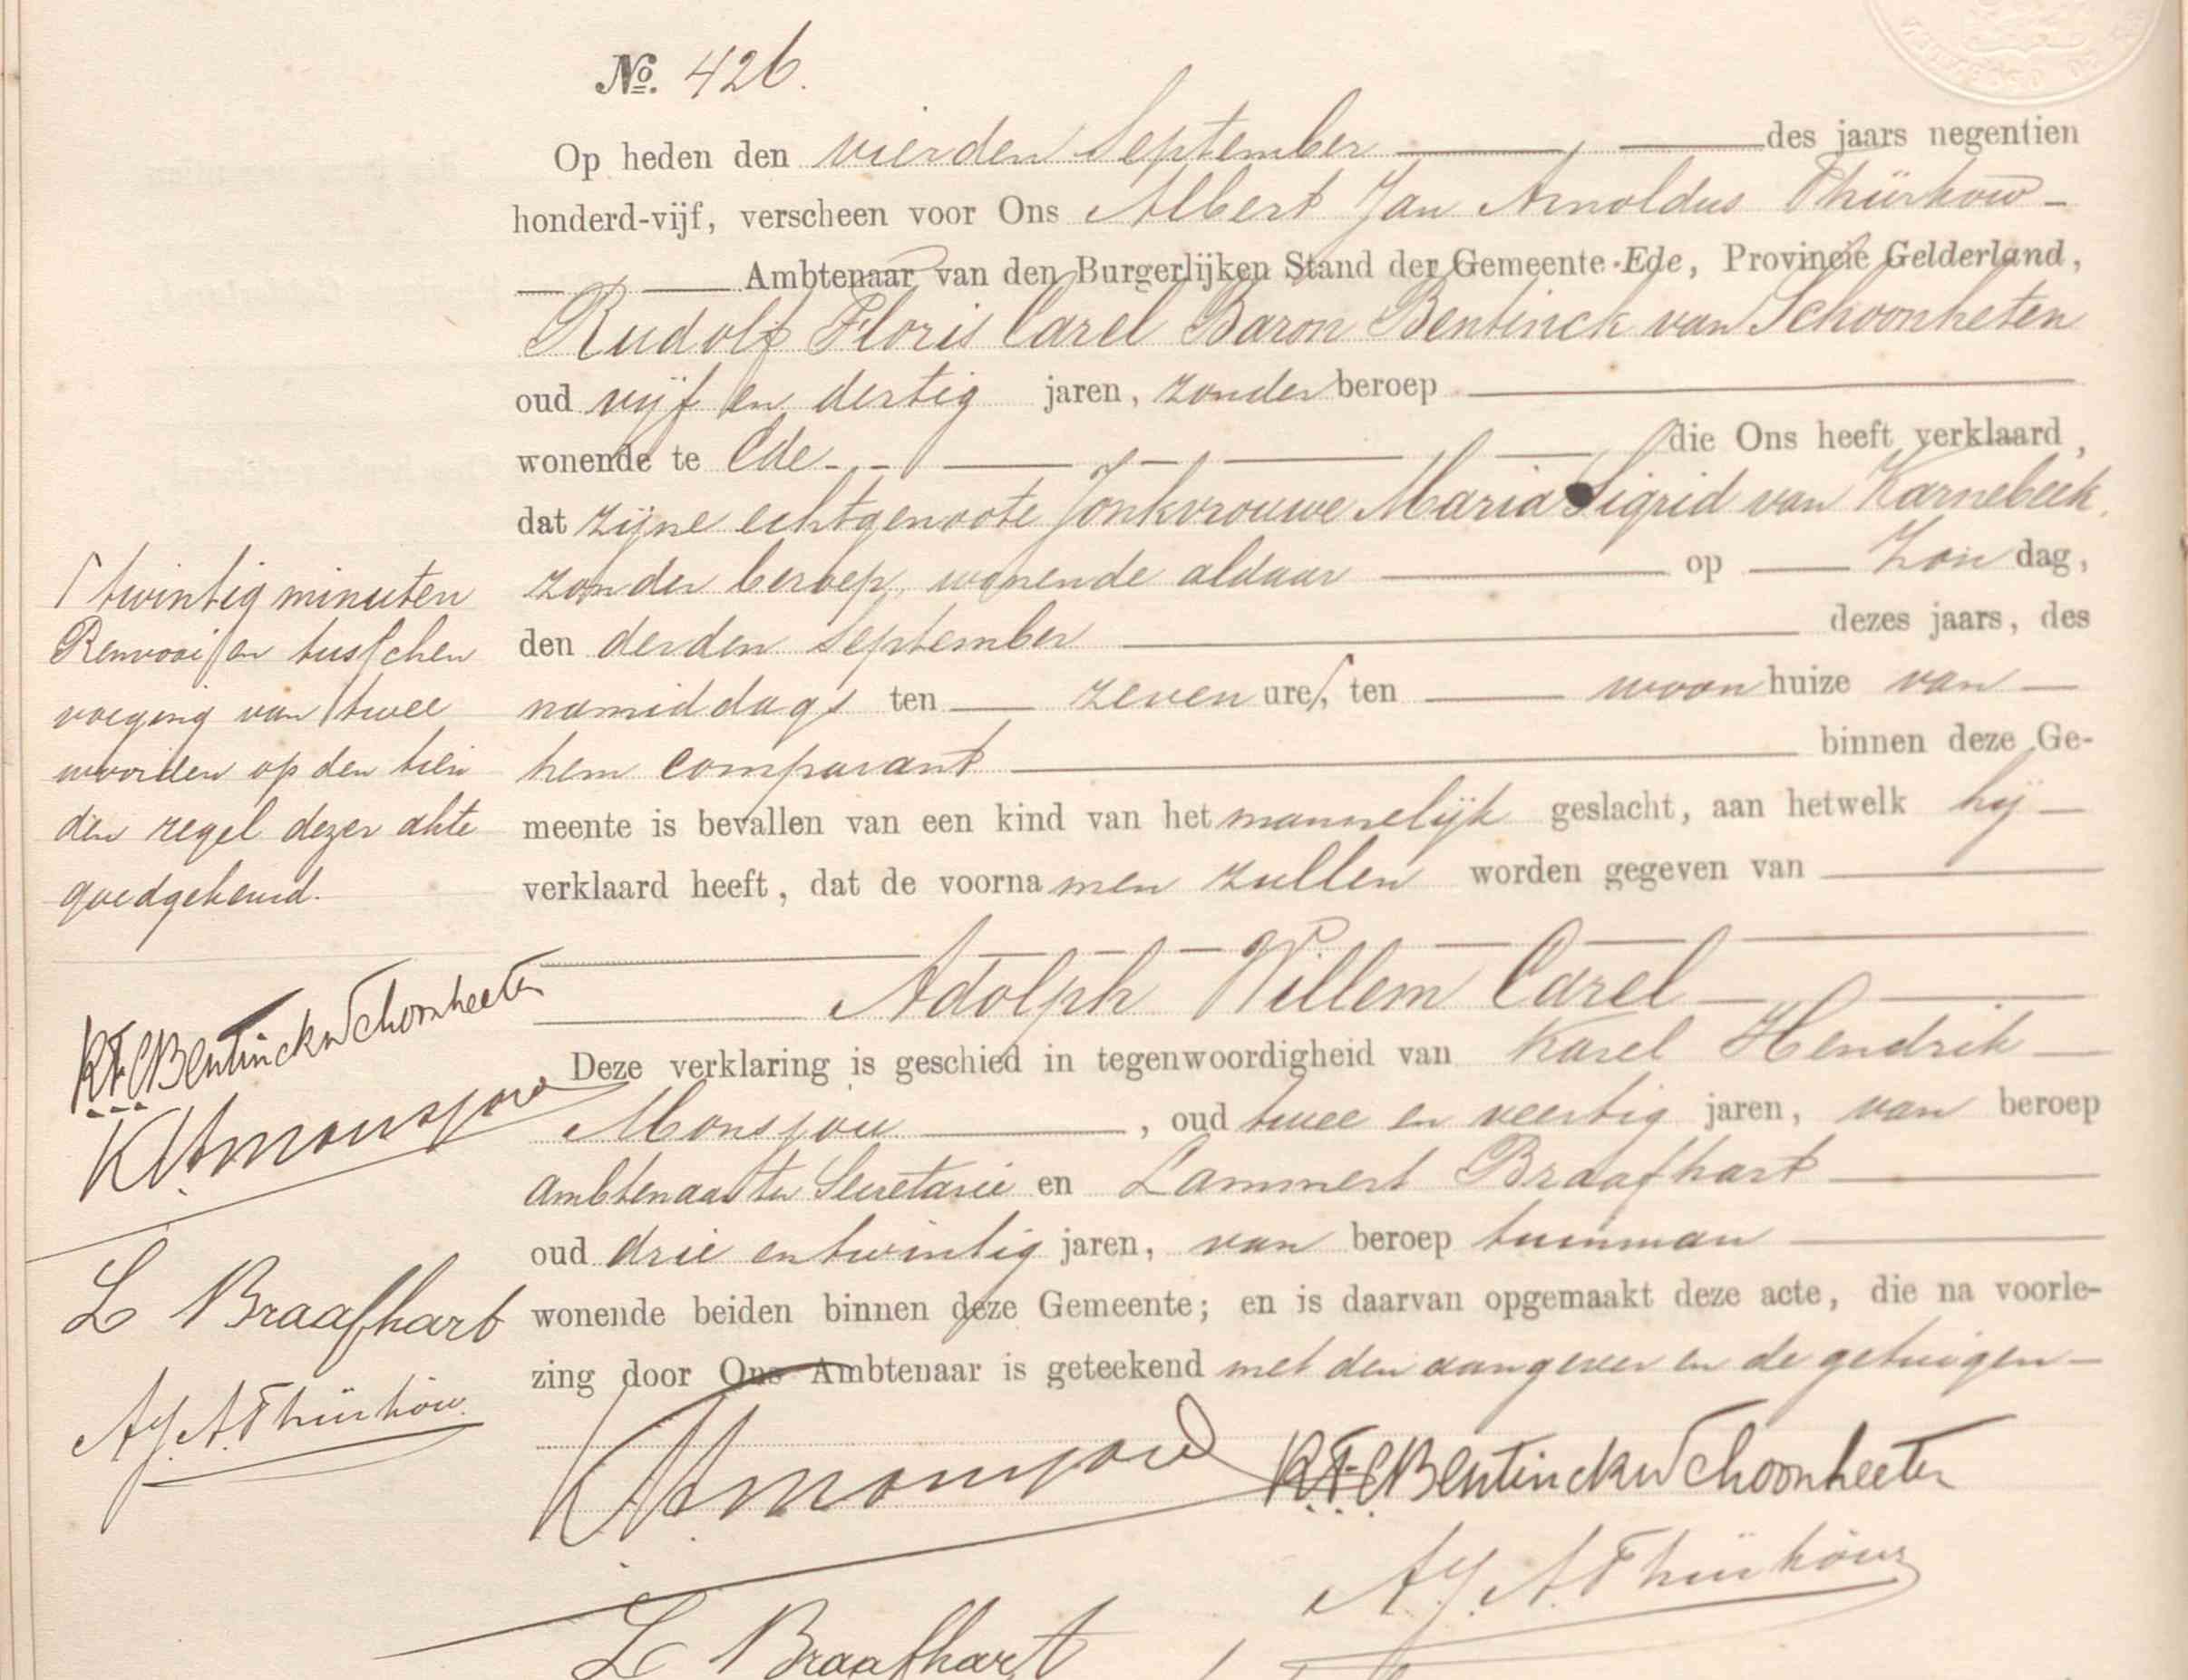 No. 426.
Op heden den vierden September des jaars negentien
honderd-vijf, verscheen voor Ons Albert Jan Arnoldus Thürkow
Ambtenaar van den Burgerlijken Stand der Gemeente Ede, Provincie Gelderland,
Rudolf Floris Carel Baron Bentinck van Schoonheten
oud vijf en dertig jaren, zonder beroep
wonende te Ede die Ons heeft verklaard,
dat zijne echtgenoote Jonkvrouwe Maria Sigrid van Karnebeek,
zonder beroep, wonende aldaar op Zondag,
den derden September dezes jaars, des
namiddags ten zeven ure, ten woonhuize van
hem comparant binnen deze Ge-
meente is bevallen van een kind van het mannelijk geslacht, aan hetwelk hij
verklaard heeft, dat de voornamen zullen worden gegeven van
Adolph Willem Carel
Deze verklaring is geschied in tegenwoordigheid van Karel Hendrik
Monsjou, oud twee en veertig jaren, van beroep
ambtenaar ter Secretarie en Lammert Braafhart
oud drie en twintig jaren, van beroep tuinman
wonende beiden binnen deze Gemeente; en is daarvan opgemaakt deze acte, die na voorle-
zing door Ons Ambtenaar is geteekend met den aangever en de getuigen
KHMonsjou RFCBentinckvSchoonheeten
A.J.A.Thürkow
L Braafhart
⌈ twintig minuten
Renvooi en tusschen
voeging van twee
woorden op den tien
den regel dezer akte
goedgekeurd.
RFCBentinckvSchoonheeten
KHMonsjou
L Braafhart
A.J.A.Thürkow.